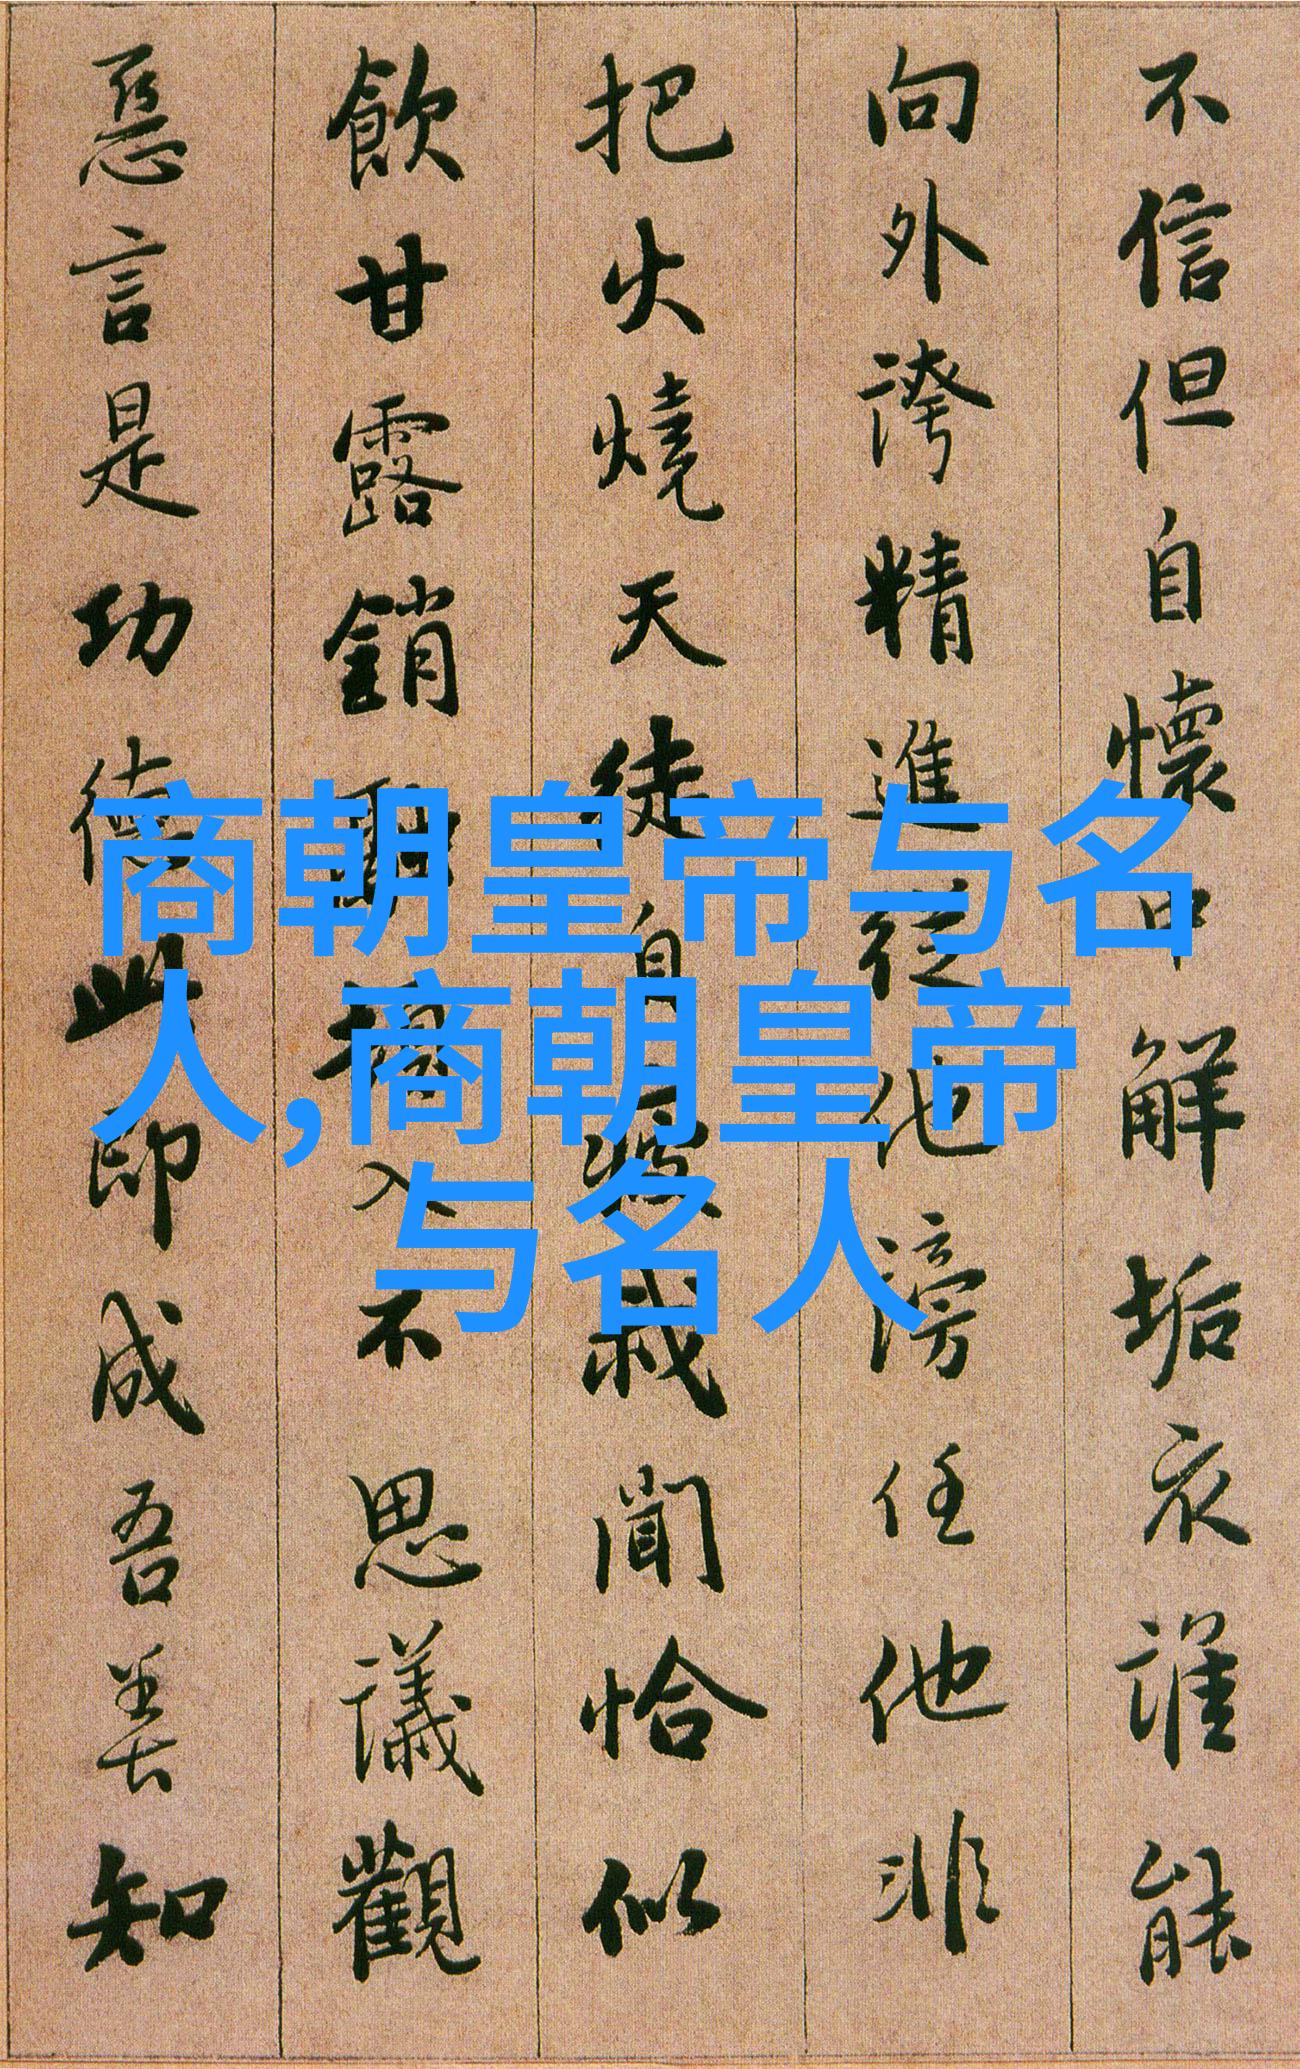 不信但自懷中解垢衣誰能
向外誇精進從他謗任他非
把火燒天徒自疲我聞恰似
飲甘露銷融頓入不思議觀
惡言是功德此即成吾善知
商朝皇帝与名
人,商朝皇帝
与名人